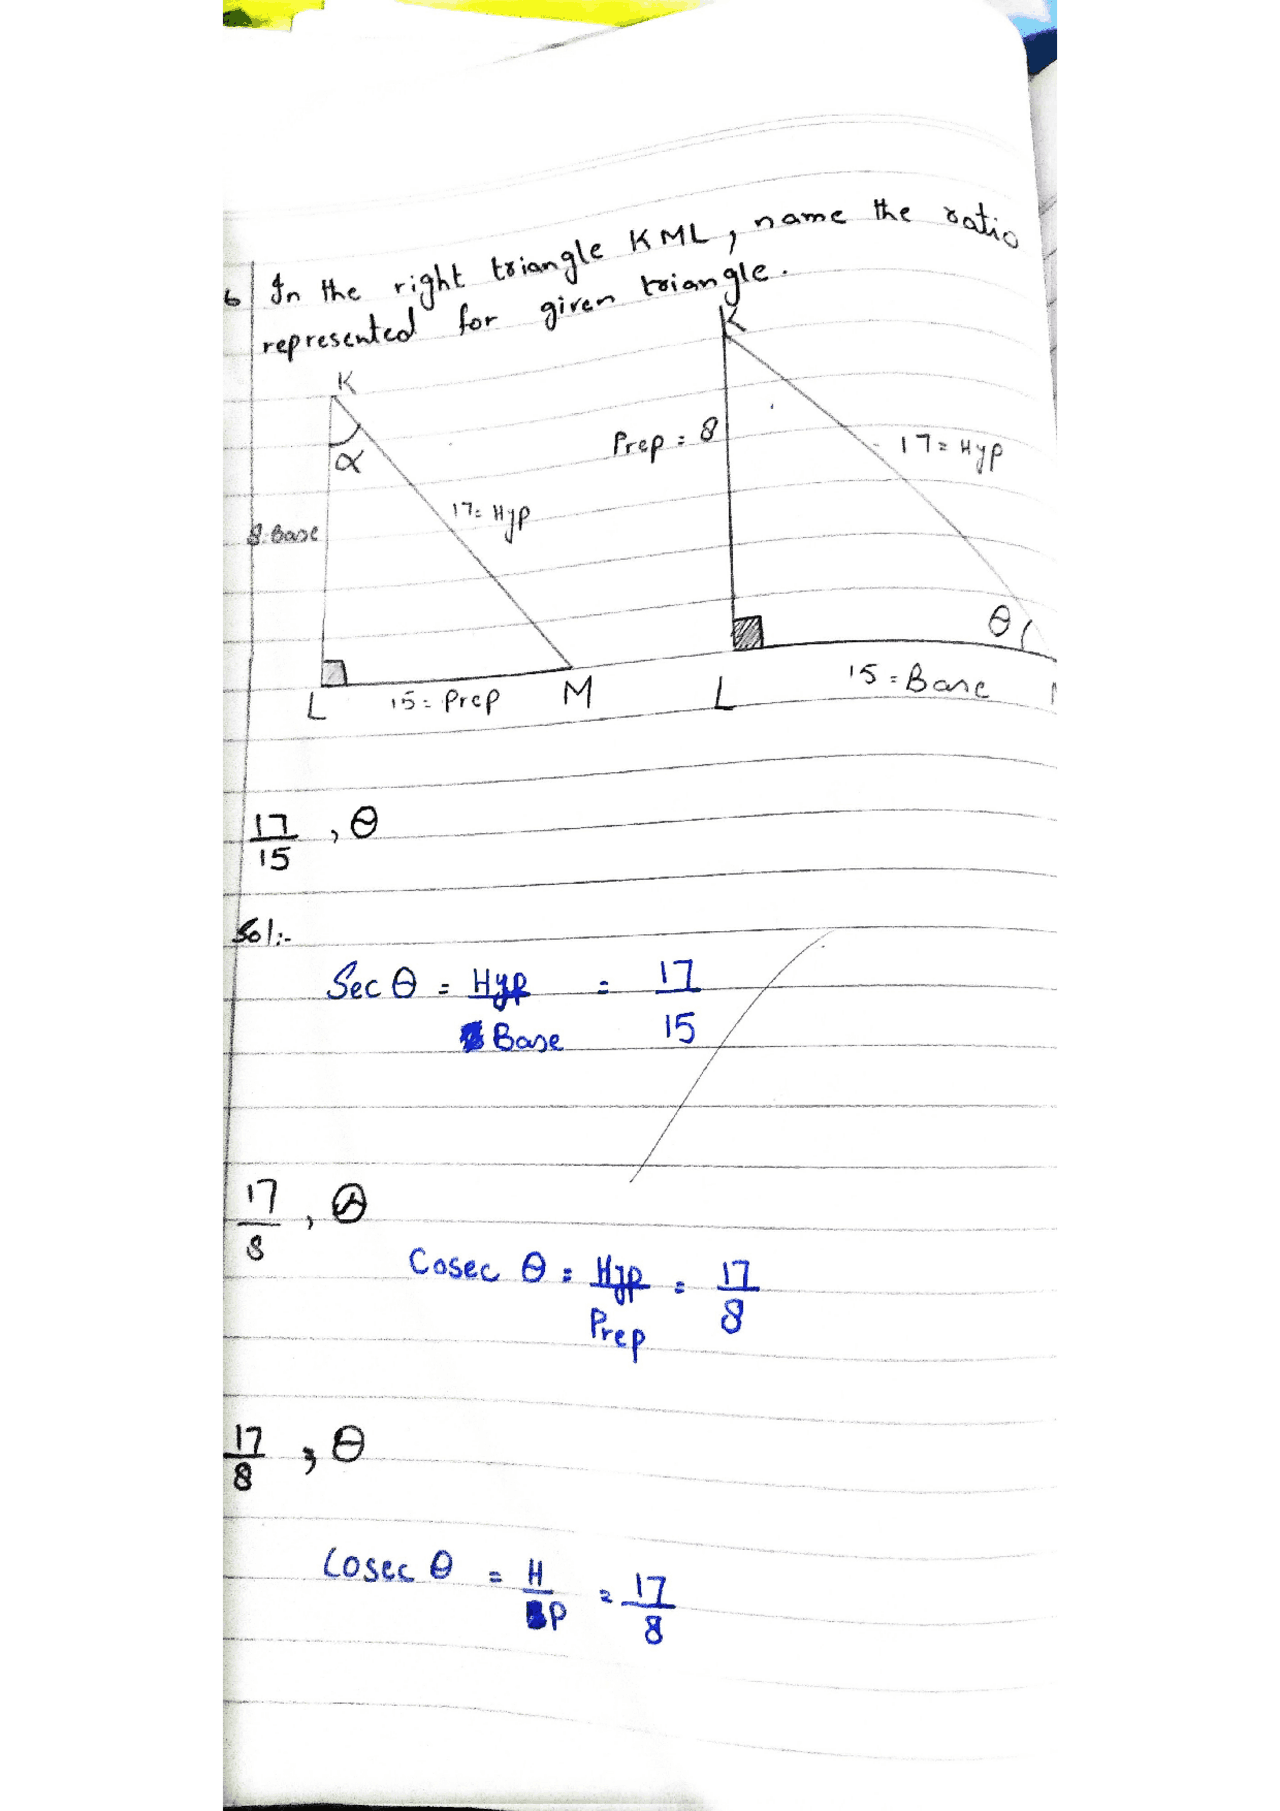 6 In the right triangle KML, name the ratio
represented for given triangle.
K
K
α
Prep = 8
17 = Hyp
8 = Base
17 = Hyp
θ
L
15 = Prep
M
L
15 = Base
17/15 , θ
Sol:-
Sec θ = Hyp/Base = 17/15
17/8 , θ
Cosec θ = Hyp/Prep = 17/8
17/8 , θ
Cosec θ = H/P = 17/8